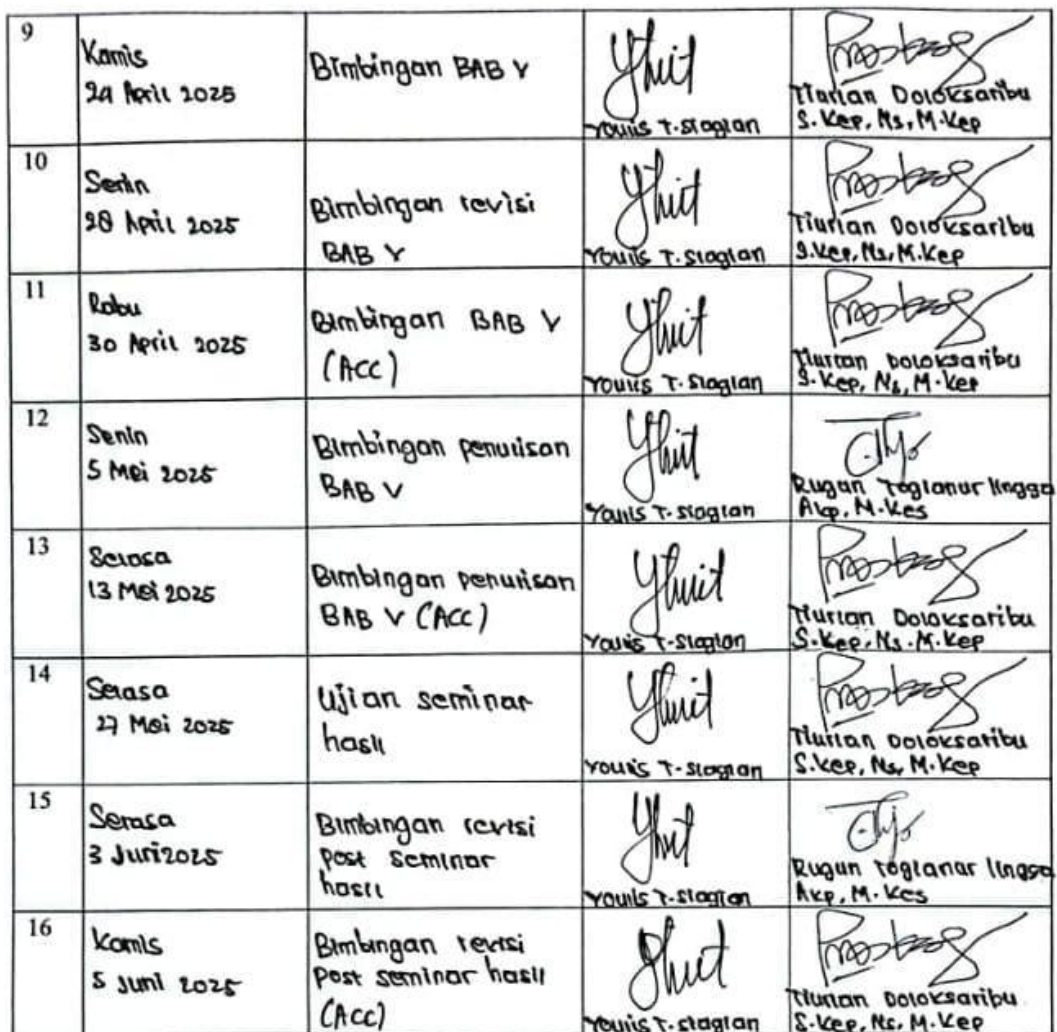 9
Kamis
24 April 2025
Bimbingan BAB V
Youlis T. Siagian
Tiurlan Doloksaribu
S.Kep, Ns, M.Kep
10
Senin
28 April 2025
Bimbingan revisi
BAB V
Youlis T. Siagian
Tiurlan Doloksaribu
S.Kep, Ns, M.Kep
11
Rabu
30 April 2025
Bimbingan BAB V
(ACC)
Youlis T. Siagian
Tiurlan Doloksaribu
S.Kep, Ns, M.Kep
12
Senin
5 Mei 2025
Bimbingan penulisan
BAB V
Youlis T. Siagian
Rugun Togianur lingga
Akp, M.Kes
13
Selasa
13 Mei 2025
Bimbingan penulisan
BAB V (ACC)
Youlis T. Siagian
Tiurlan Doloksaribu
S.Kep, Ns, M.Kep
14
Selasa
27 Mei 2025
Ujian seminar
hasil
Youlis T. Siagian
Tiurlan Doloksaribu
S.Kep, Ns, M.Kep
15
Selasa
3 Juni 2025
Bimbingan revisi
post seminar
hasil
Youlis T. Siagian
Rugun Togianur lingga
Akp, M.Kes
16
Kamis
5 Juni 2025
Bimbingan revisi
post seminar hasil
(ACC)
Youlis T. Siagian
Tiurlan Doloksaribu
S.Kep, Ns, M.Kep